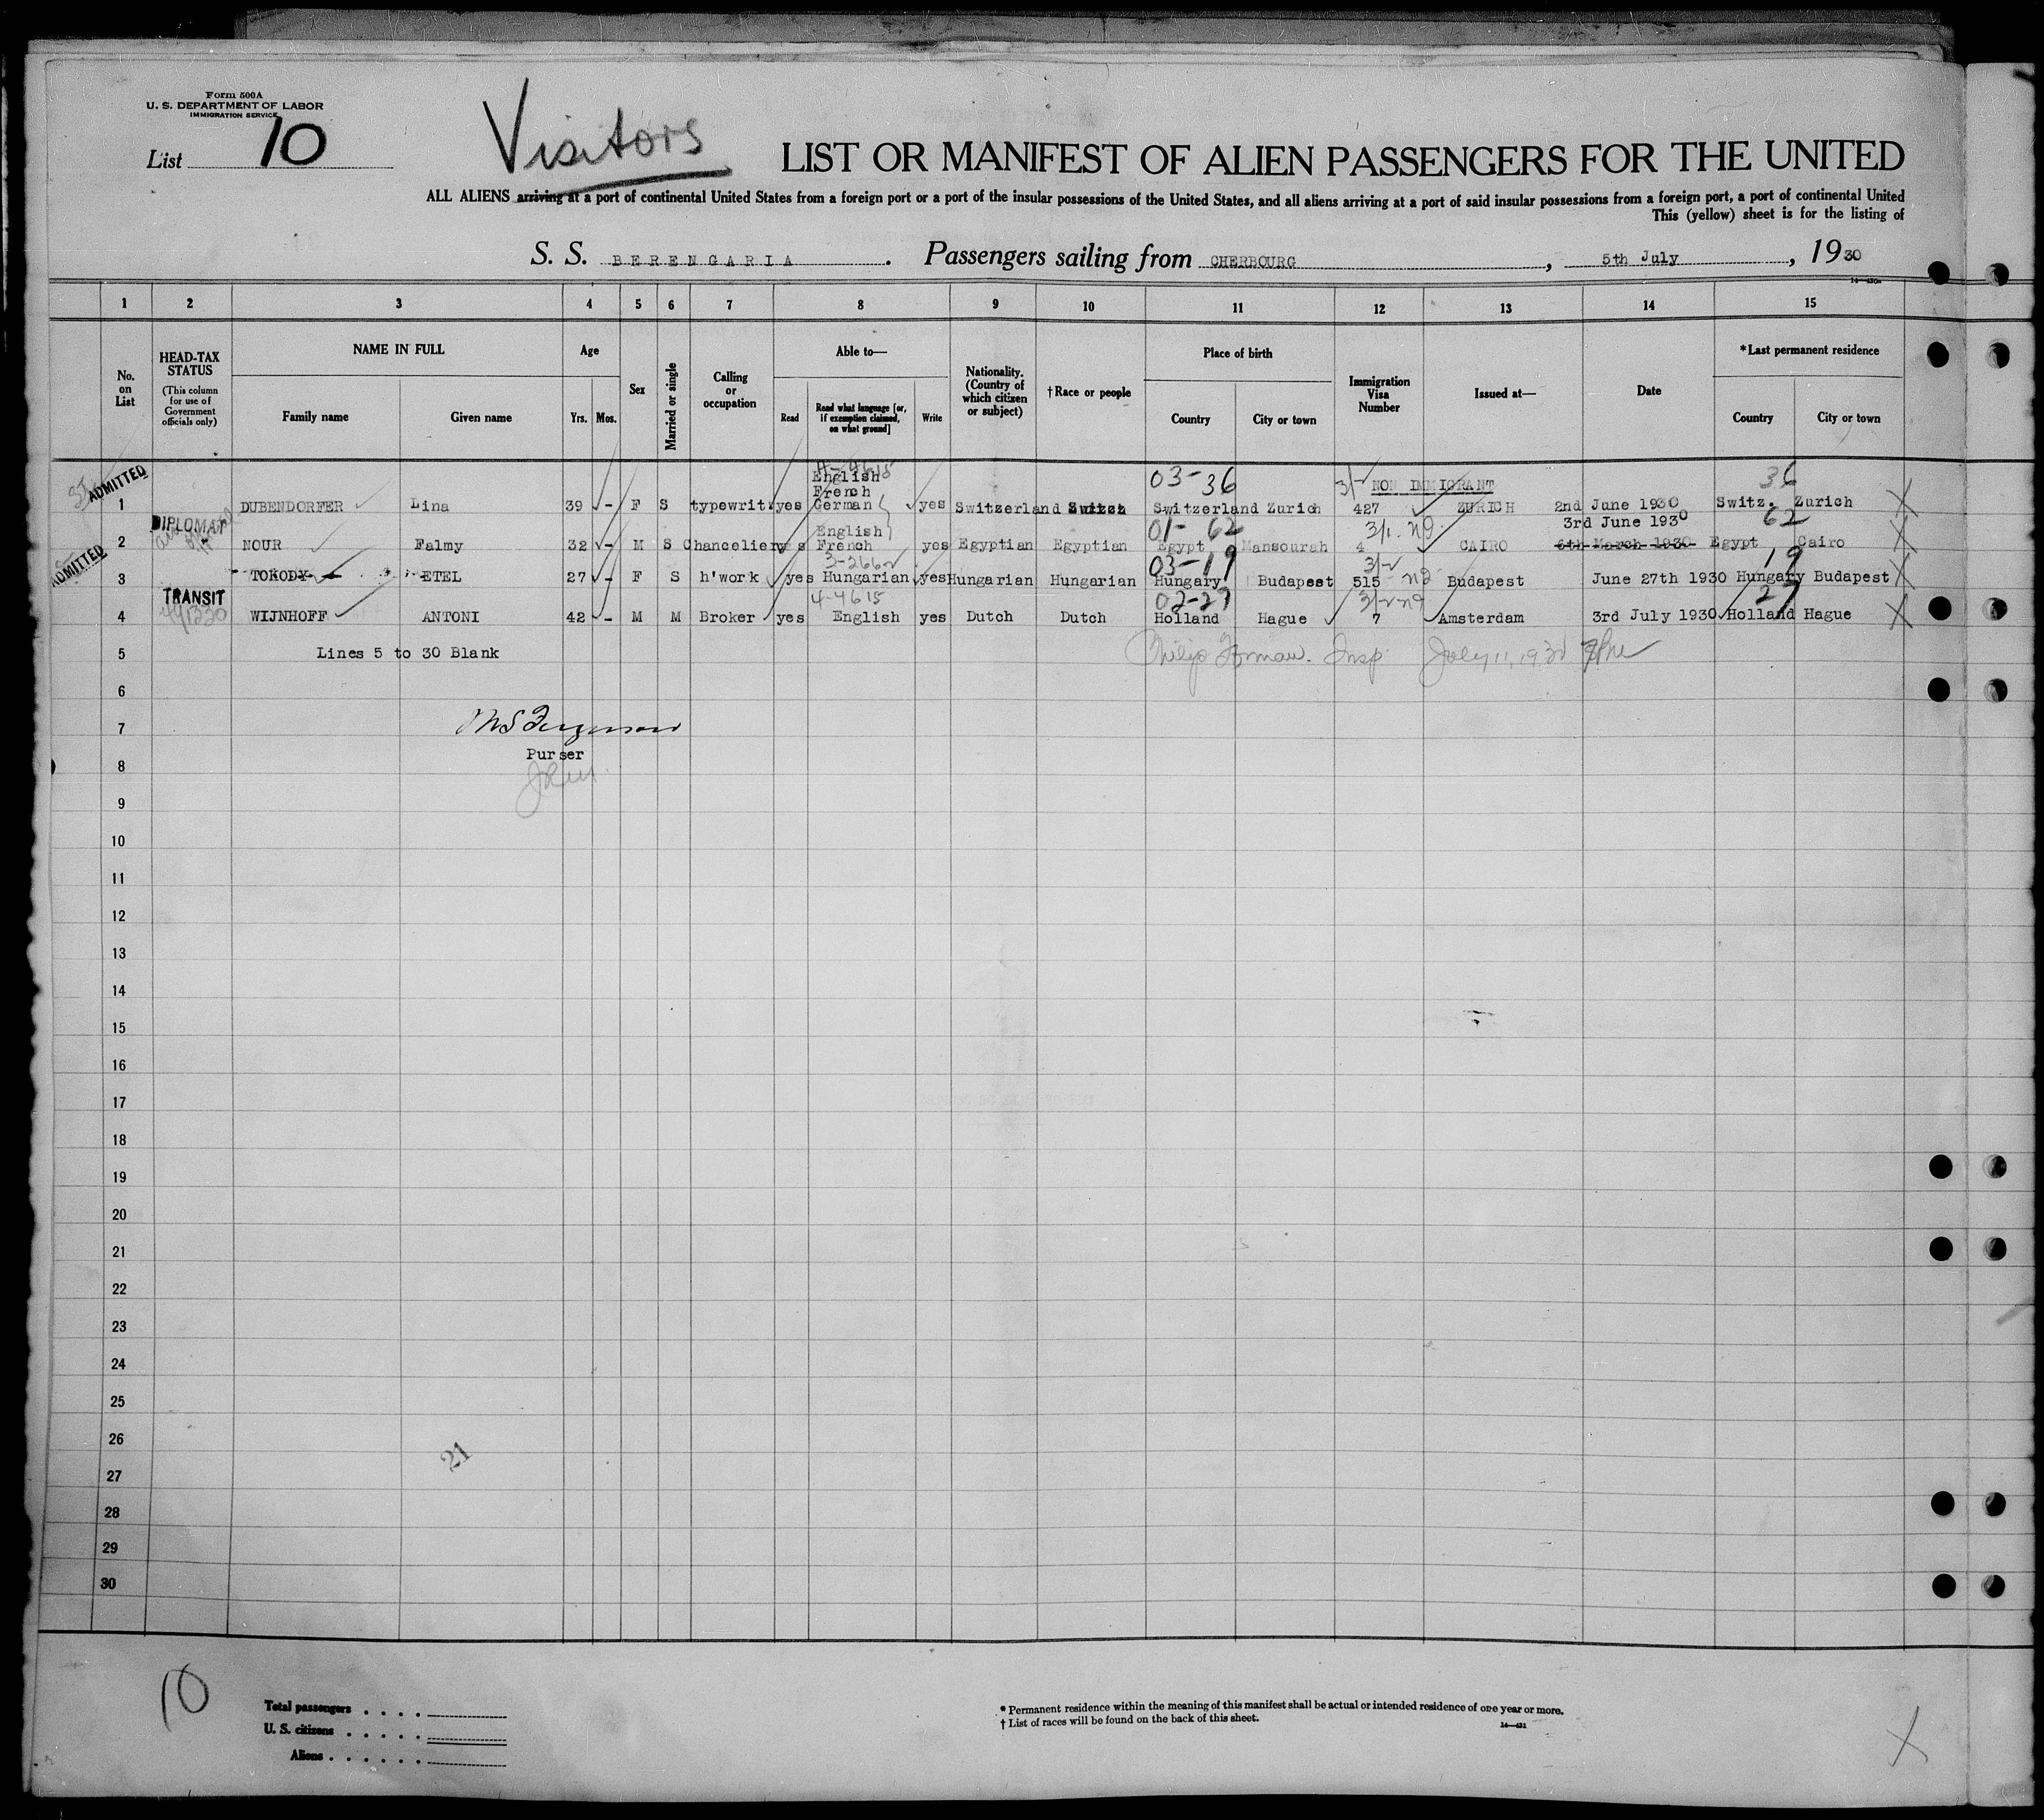 Form 500A
U. S. DEPARTMENT OF LABOR
IMMIGRATION SERVICE
List 10
Visitors
LIST OR MANIFEST OF ALIEN PASSENGERS FOR THE UNITED
ALL ALIENS arriving at a port of continental United States from a foreign port or a port of the insular possessions of the United States, and all aliens arriving at a port of said insular possessions from a foreign port, a port of continental United
This (yellow) sheet is for the listing of
S. S. BERENGARIA. Passengers sailing from CHERBOURG, 5th July, 1930
14—430a
1 2 3 4 5 6 7 8 9 10 11 12 13 14 15
No. on List
HEAD-TAX STATUS
(This column for use of Government officials only)
NAME IN FULL
Family name Given name
Age
Yrs. Mos.
Sex
Married or single
Calling or occupation
Able to—
Read
Read what language [or, if exemption claimed, on what ground]
Write
Nationality. (Country of which citizen or subject)
†Race or people
Place of birth
Country City or town
Immigration Visa Number
Issued at—
Date
*Last permanent residence
Country City or town
4-4615
03-36 3/- NON IMMIGRANT 36
ADMITTED 1 DUBENDORFER Lina 39 - F S typewrit yes English French German yes Switzerland Swiss Switzerland Zurich 427 ZURICH 2nd June 1930 Switz. Zurich
01- 62 3/1. ng. 3rd June 1930 62
DIPLOMAT
ADMITTED 2 NOUR Falmy 32 - M S Chancelier yes English French yes Egyptian Egyptian Egypt Mansourah 4 CAIRO 6th March 1930 Egypt Cairo
3-266 03-19 3/- 19
3 TOKODY ETEL 27 - F S h'work yes Hungarian yes Hungarian Hungarian Hungary Budapest 515 ng Budapest June 27th 1930 Hungary Budapest
TRANSIT
4-4615 02-27 27
4 WIJNHOFF ANTONI 42 - M M Broker yes English yes Dutch Dutch Holland Hague 7 Amsterdam 3rd July 1930 Holland Hague
5 Lines 5 to 30 Blank Insp. July 11, 1930
6
7
Purser
8
9
10
11
12
13
14
15
16
17
18
19
20
21
22
23
24
25
26
21
27
28
29
30
10
Total passengers
U. S. citizens
Aliens
* Permanent residence within the meaning of this manifest shall be actual or intended residence of one year or more.
† List of races will be found on the back of this sheet.
14—431